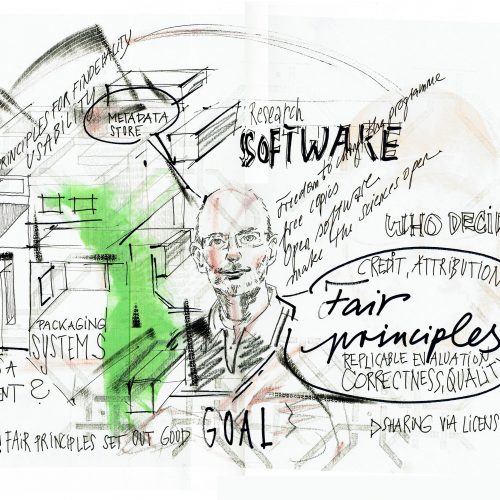 PRINCIPLES FOR FINDEBALITY
USABILITY
METADATA
STORE
Research
SOFTWARE
Freedom to run the programme
free copies
open software
make the sciences open
WHO DECID
CREDIT, ATTRIBUTION
Fair
principles
REPLICABLE EVALUATION
CORRECTNESS, QUALIT
PACKAGING
SYSTEMS
S A
ENT?
FAIR PRINCIPLES SET OUT GOOD GOAL
SHARING VIA LICENS